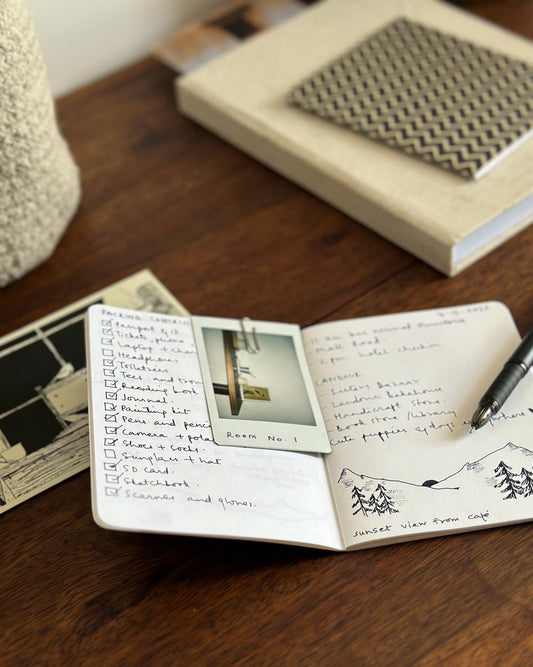 PACKING CHECKLIST
Passport & ID
Tickets, phone
Laptop + char
Headphone
Toiletries
Tees and trou
Reading book
Journal
Painting kit
Pens and penci
Camera + pola
Shoes + socks
Sunglass + hat
SD card.
Sketchbook.
Scarves and gloves.
ROOM NO. 1
11 am bus around Mussoorie
- Mall Road
- 2 pm hotel checkin
LANDOUR
- Sisters Bazaar
- Landour Bakehouse
- Handicraft Store
- Book store/library
cute puppies & dogs everywhere
sunset view from café